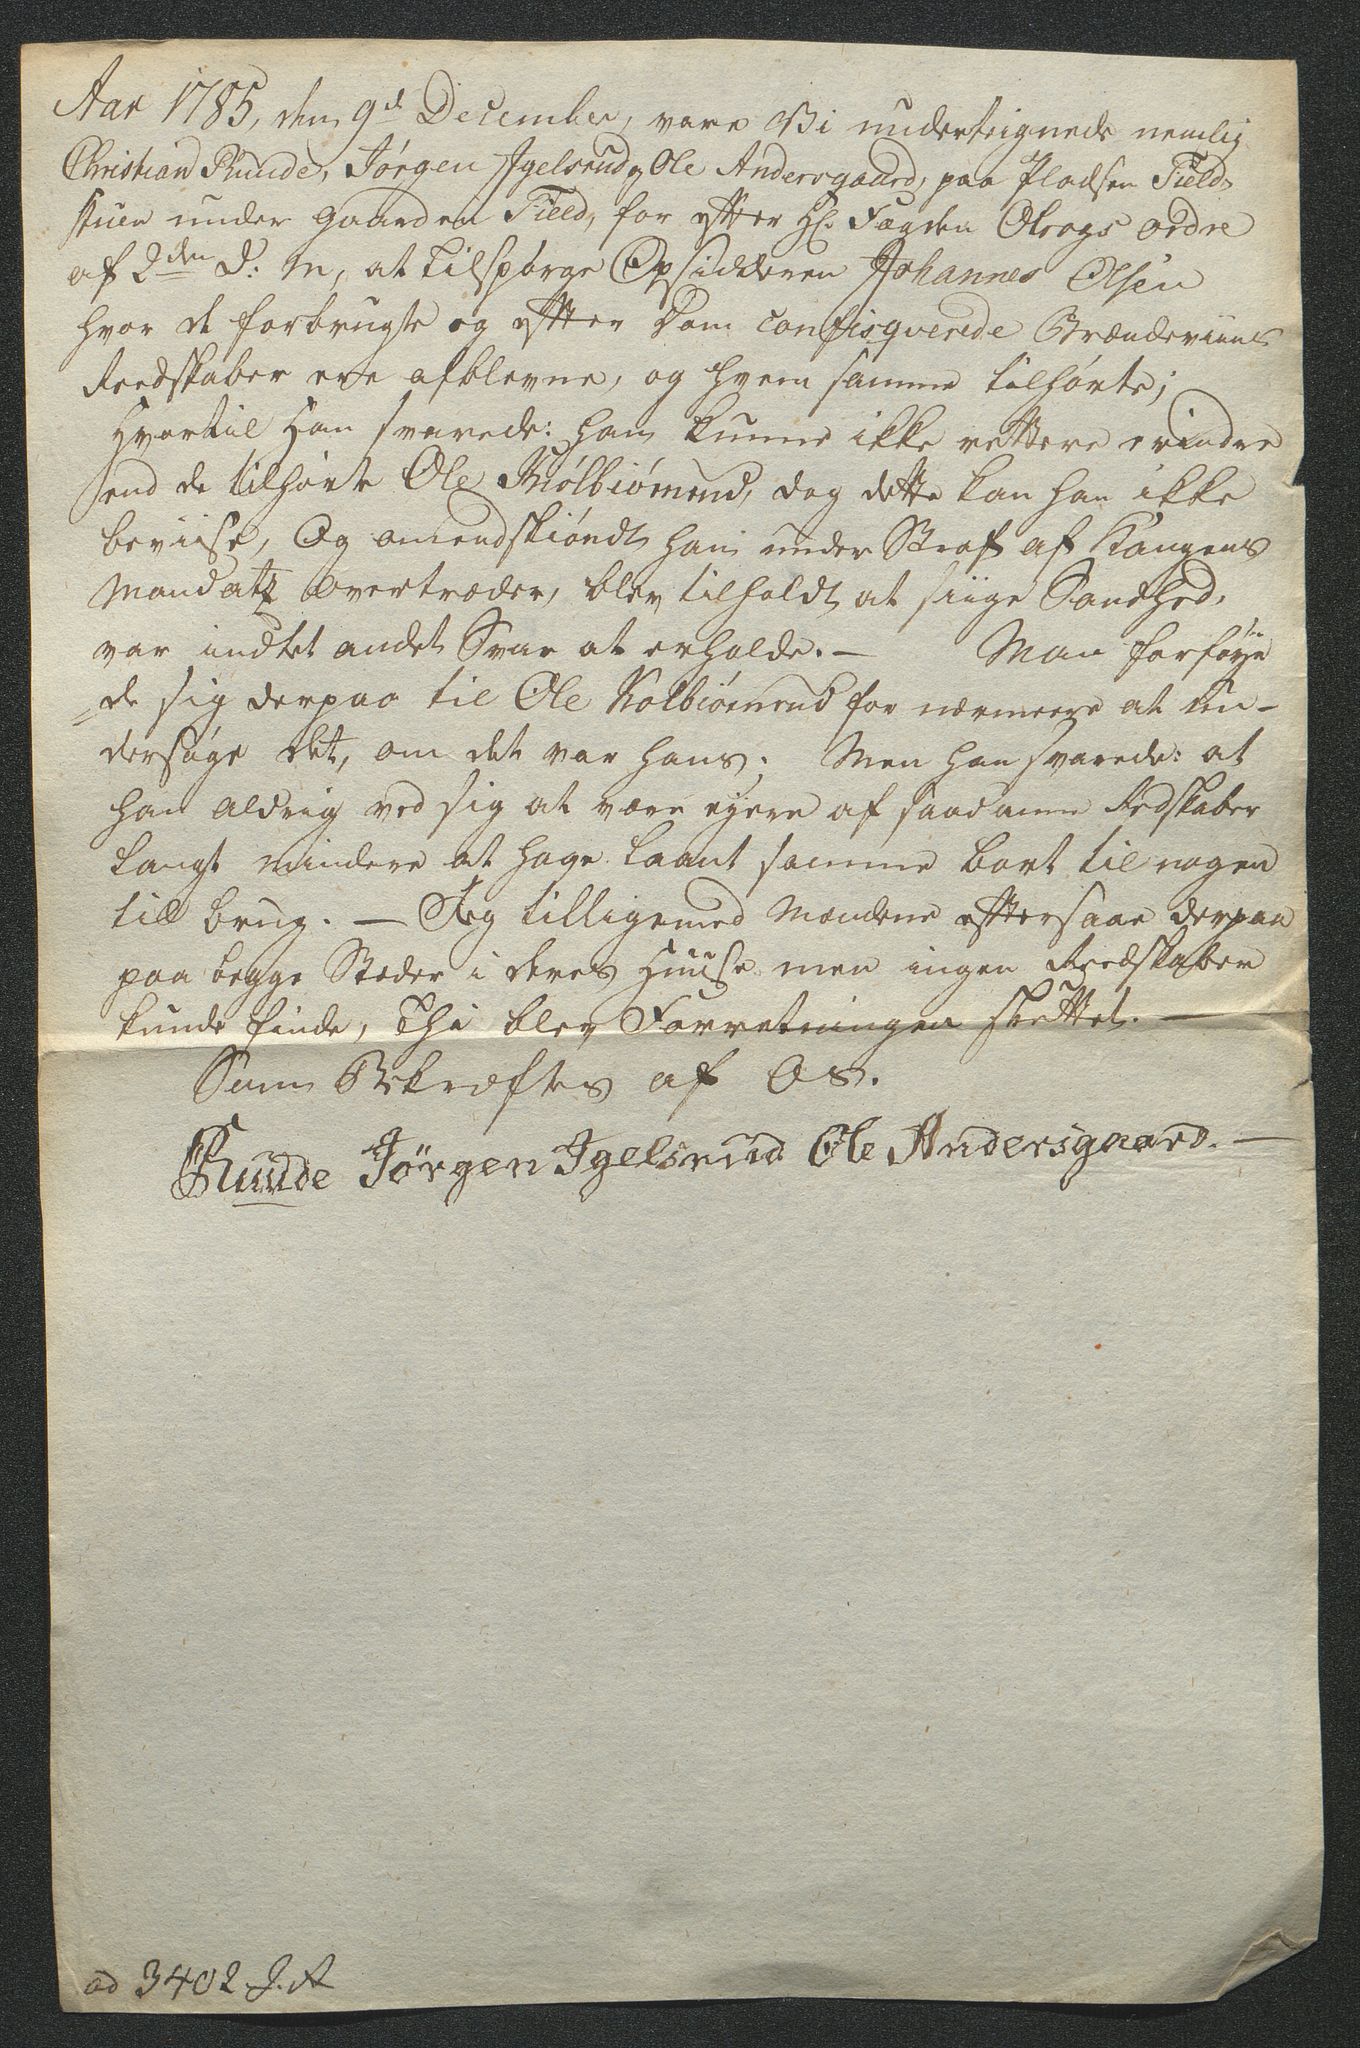 Aar 1785, den 9d December, vare Vi undertegnede nemlig
Christian Ruude, Jørgen Igelsrud og Ole Andersgaard, paa Pladsen Field-
stuen under Gaarden Field, for efter Hr. Fogden Ordre
af 2den D: M, at tilspørge Opsidderen Johannes Olsen
hvor de forbrugte og efter Dom confisqverede Brændeviins
Reedskaber ere afblevne, og hvem samme tilhørte;
Hvortil Han svarede: han kunne ikke rettere erindre
end de tilhørte Ole Kolbiørnrud, dog dette kan han ikke
beviise, Og omendskiøndt han under Straf af Kongens
Mandatz overtræder, blev tilholdt at siige Sandhed,
var indtet andet Svar at erholde. — Man forføye
=de sig derpaa til Ole Kolbiørnrud for nærmere at un-
dersøge det, om det var hans; Men han svarede: at
han aldrig ved sig at være eyere af saadanne Redskaber
langt mindre at have laant samme bort til nogen
till brug. — Jeg tilligemed Mændene eftersaae derpaa
paa begge Stæder i deres Huuse men ingen Reedskaber
kunde finde, Thi blev Forretningen sluttet. —
Som Bekræftes af Os.
Ruude Jørgen Igelsrud Ole Andersgaard. —
ad 3402 J. A